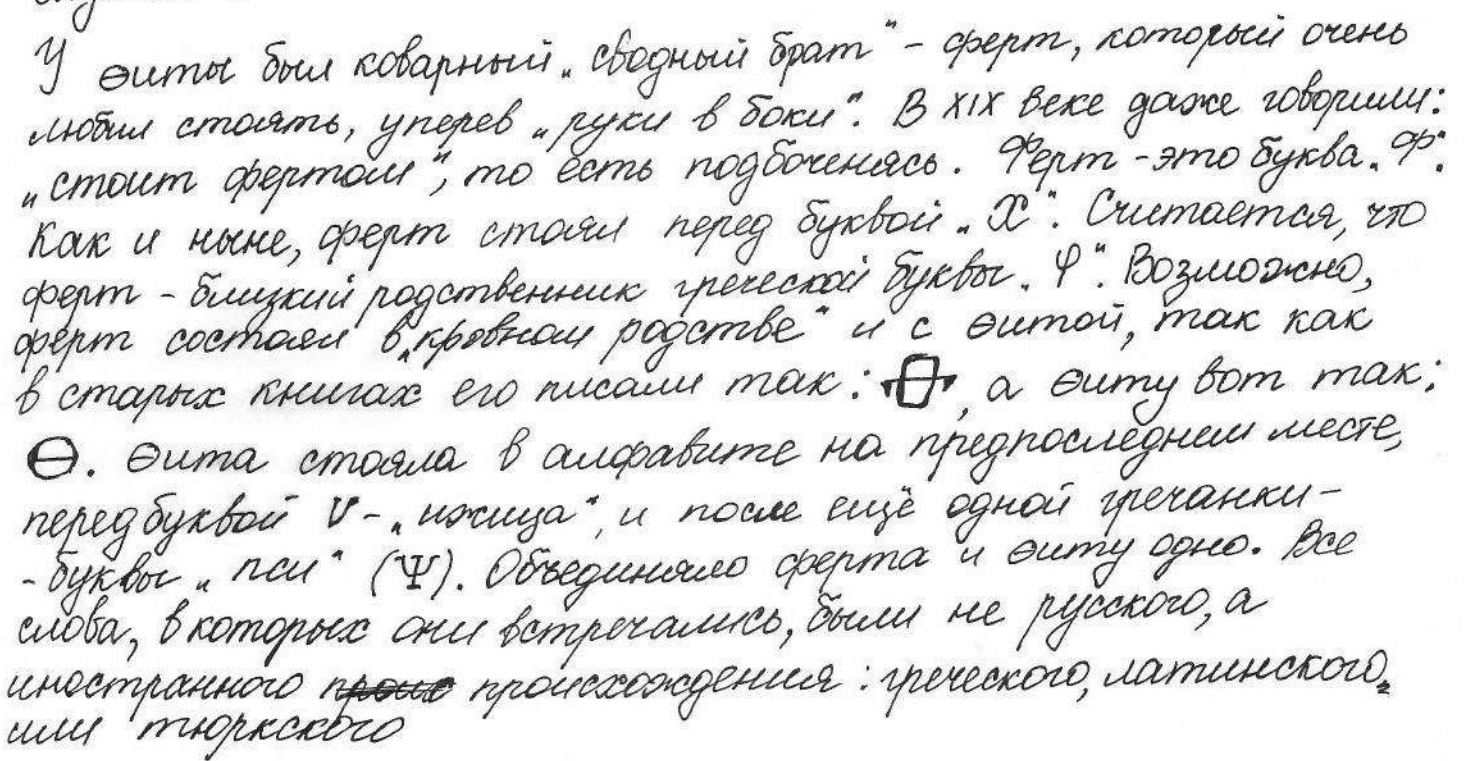 У ѳиты был коварный „сводный брат" - ферт, который очень
любил стоять, уперев „руки в боки". В XIX веке даже говорили:
„стоит фертом", то есть подбоченясь. Ферт - это буква „Ф".
Как и ныне, ферт стоял перед буквой „Х". Считается, что
ферт - близкий родственник греческой буквы „φ". Возможно,
ферт состоял в „кровном родстве" и с ѳитой, так как
в старых книгах его писали так: , а ѳиту вот так:
Ѳ. Ѳита стояла в алфавите на предпоследнем месте,
перед буквой V - „ижица", и после ещё одной гречанки-
-буквы „пси" (Ψ). Объединяло ферта и ѳиту одно. Все
слова, в которых они встречались, были не русского, а
иностранного происхождения: греческого, латинского,
или тюркского